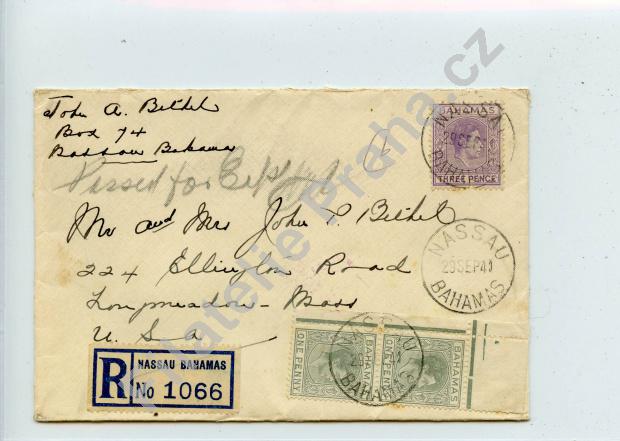 John A. Bethel
Box 74
Nassau Bahamas
Passed for
Mr and Mrs John P. Bethel
224 Ellington Road
Longmeadow - Mass
U. S. A
BAHAMAS
THREE PENCE
NASSAU
29 SEP
BAHAMAS
NASSAU
29 SEP 41
BAHAMAS
BAHAMAS
ONE PENNY
BAHAMAS
ONE PENNY
NASSAU
BAHAMAS
R
NASSAU BAHAMAS
No 1066
Filatelie Praha.cz